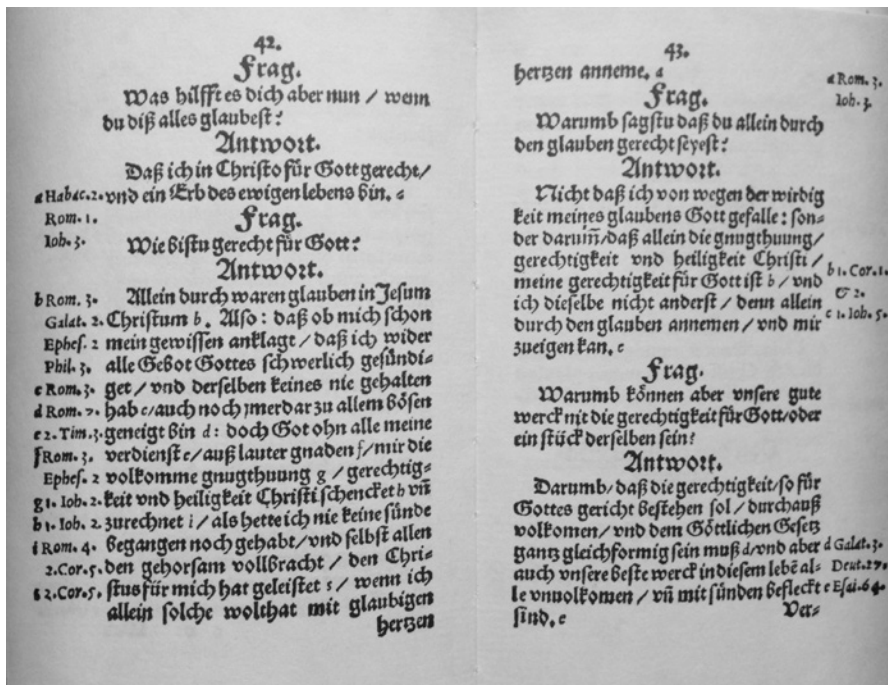 42.
Frag.
Was hilfft es dich aber nun / wenn
du diß alles glaubest?
Antwort.
Daß ich in Christo für Gott gerecht /
a Habac. 2. vnd ein Erb des ewigen lebens bin. a
Rom. 1.
Frag.
Ioh. 3. Wie bistu gerecht für Gott?
Antwort.
b Rom. 3. Allein durch waren glauben in Jesum
Galat. 2. Christum b. Also: daß ob mich schon
Ephes. 2 mein gewissen anklagt / daß ich wider
Phil. 3. alle Gebot Gottes schwerlich gesündi=
c Rom. 3. get / vnd derselben keines nie gehalten
d Rom. 7. hab c / auch noch jmerdar zu allem bösen
e 2. Tim. 3. geneigt bin d: doch Got ohn alle meine
f Rom. 3. verdienst e / auß lauter gnaden f / mir die
Ephes. 2 volkomme gnugthuung g / gerechtig=
g 1. Ioh. 2. keit vnd heiligkeit Christi schencket h vñ
h 1. Ioh. 2. zurechnet i / als hette ich nie keine sünde
i Rom. 4. begangen noch gehabt / vnd selbst allen
2. Cor. 5. den gehorsam vollbracht / den Chri=
2. Cor. 5. stus für mich hat geleistet / wenn ich
allein solche wolthat mit glaubigen
hertzen
43.
hertzen anneme. a a Rom. 3.
Frag. Ioh. 3.
Warumb sagstu daß du allein durch
den glauben gerecht seyest?
Antwort.
Nicht daß ich von wegen der wirdig
keit meines glaubens Gott gefalle: son=
der darum̃ / daß allein die gnugthuung /
gerechtigkeit vnd heiligkeit Christi /
meine gerechtigkeit für Gott ist b / vnd b 1. Cor. 1.
ich dieselbe nicht anderst / denn allein & 2.
durch den glauben annemen / vnd mir c 1. Ioh. 5.
zueigen kan. c
Frag.
Warumb können aber vnsere gute
werck nit die gerechtigkeit für Gott / oder
ein stück derselben sein?
Antwort.
Darumb / daß die gerechtigkeit / so für
Gottes gericht bestehen sol / durchauß
volkomen / vnd dem Göttlichen Gesetz
gantz gleichformig sein muß d / vnd aber d Galat. 3.
auch vnsere beste werck in diesem lebẽ al= Deut. 27.
le vnuolkomen / vñ mit sünden befleckt e Esai. 64.
sind. e Ver=